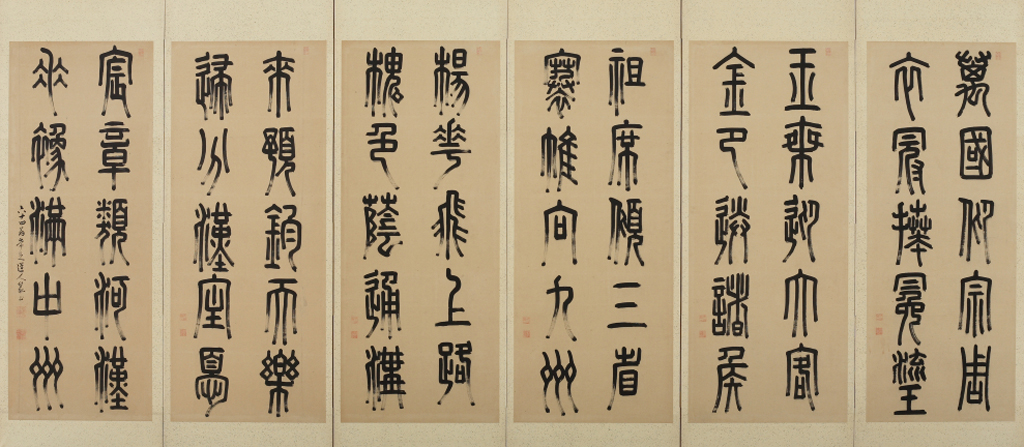 萬國仰宗周
衣冠捧冕瑬
玉乘迎大客
金卩送諸侯
祖席傾三省
褰帷向九州
楊華飛上路
槐色蔭通溝
來預鈞天樂
歸分漢室憂
宸章類河漢
垂象滿中州
六十四翁 道人